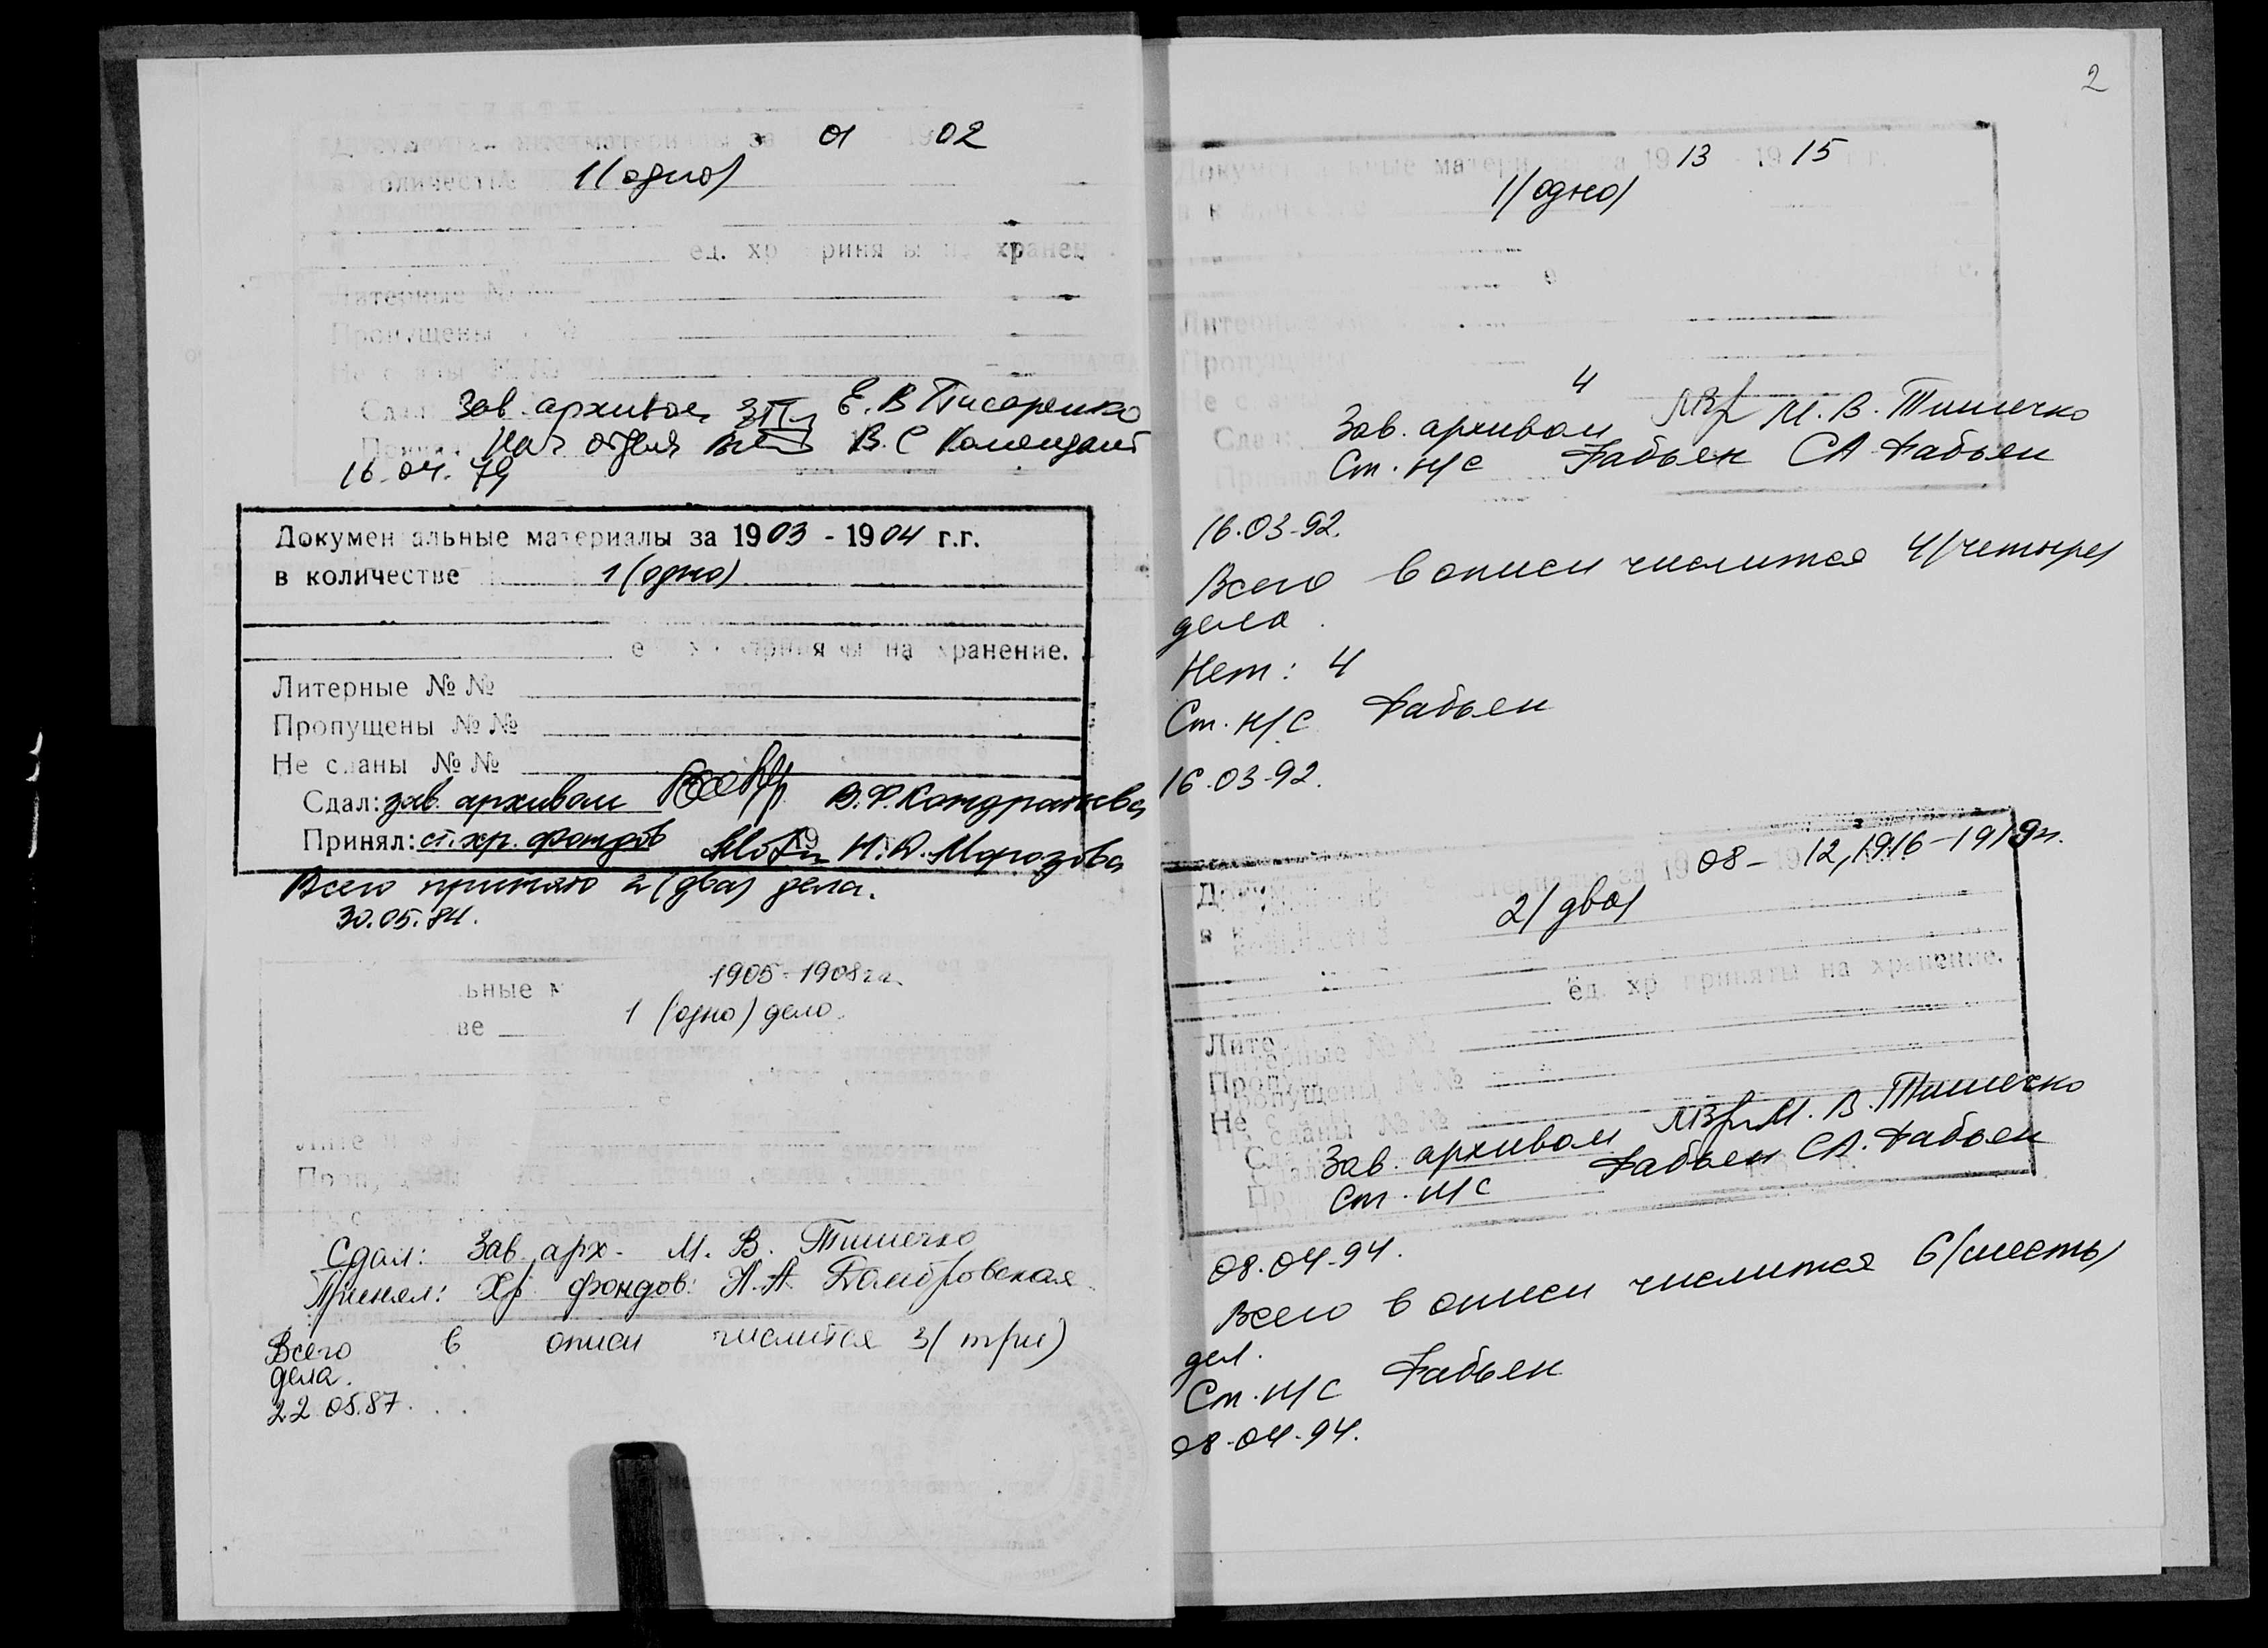 01 1902
в количестве 1 (одно)
ед. хр приняты на хранен
Литерные №
Пропущены №
Зав. архивом Е. В Писаренко
Нач отдела В. С Комендант
16.04.79
Документальные материалы за 1903 - 1904 г.г.
в количестве 1 (одно)
приняты на хранение.
Литерные № №
Пропущены № №
Не сданы № №
Сдал: зав. архивом В.Ф. Кондратьева
Принял: ст. хр. фондов 19 Н.Д. Морозова
Всего принято 2 (два) дела.
30.05.84.
1905 - 1908 г.г.
ьные м
ве 1 (одно) дело.
Сдал: Зав. арх. М. В. Тимечко
Принял: Хр. фондов: Н. А. Домбровская
Всего в описи числится 3 (три)
дела.
22.05.87.
2
Документальные материалы за 1913 - 1915 г.г.
1 (одно)
Литерные
Пропущены
Не сданы 4
Сдал: Зав. архивом М. В. Тимечко
Принял Ст. н/с Фабьен С А Фабьен
16.03-92.
Всего в описи числится 4 (четыре)
дела.
Нет: 4
Ст. н/с Фабьен
16.03-92.
1908 - 1912, 1916 - 1919 гг.
2 (два)
ед. хр приняты на хранение.
Литерные № №
Пропущены № №
Не сданы № №
Зав. архивом М. В. Тимечко
Ст. н/с Фабьен С А. Фабьен
08.04-94.
Всего в описи числится 6 (шесть)
дел.
Ст. н/с Фабьен
08-04-94.